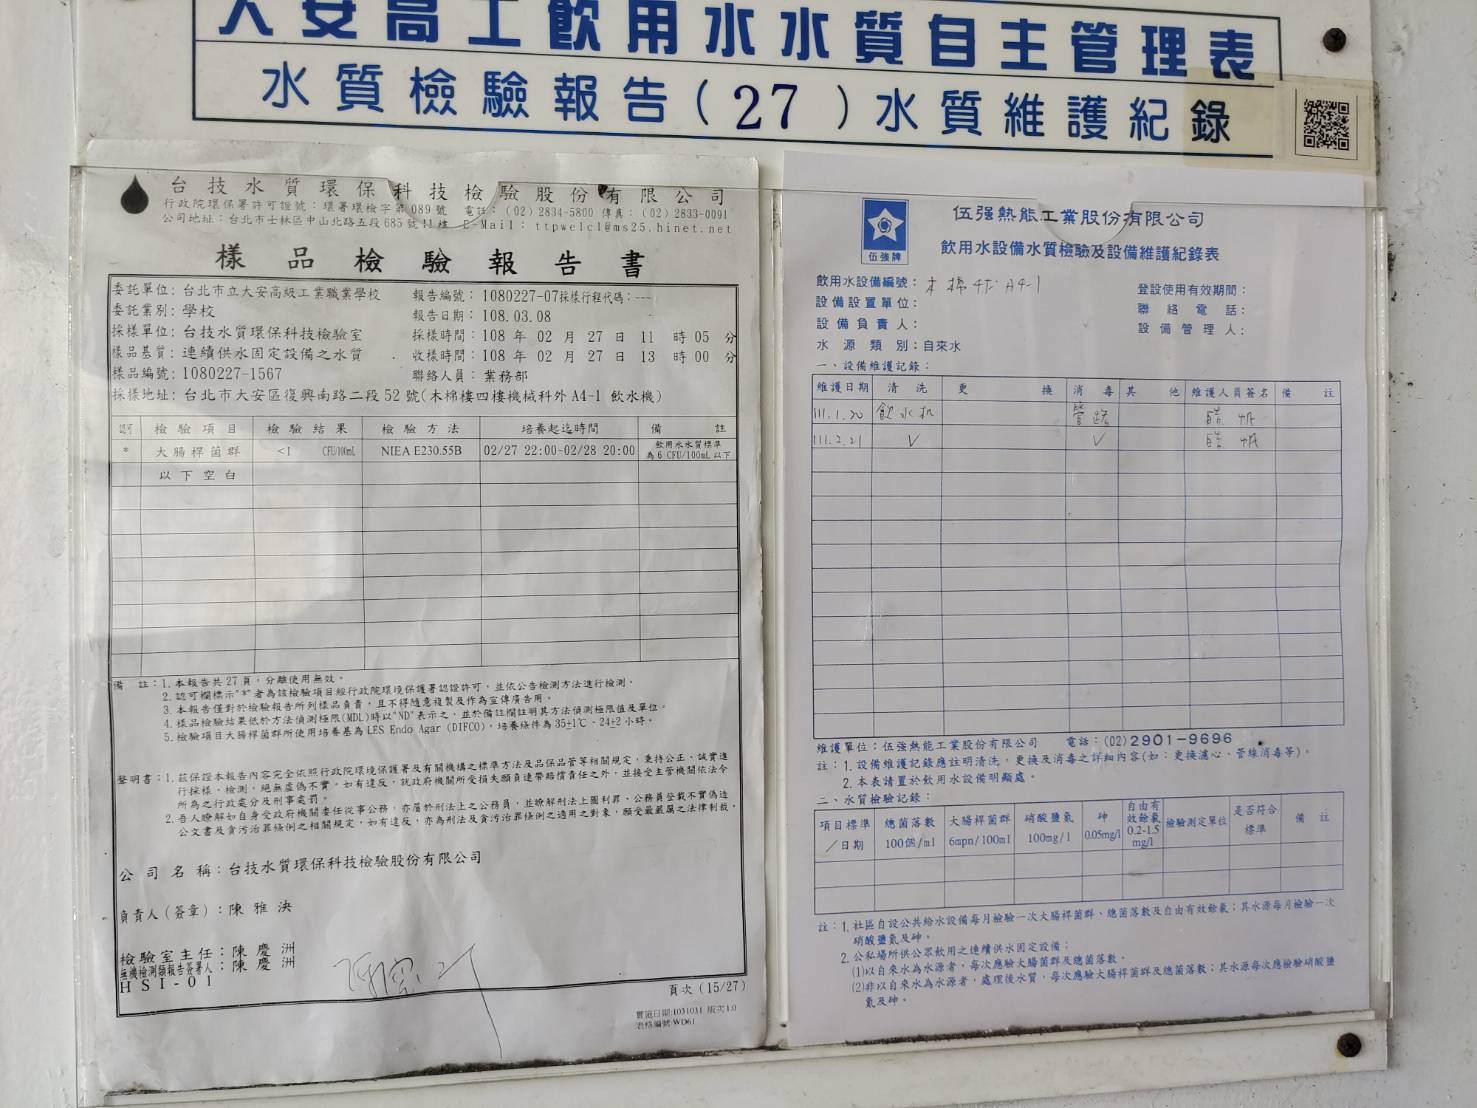 大安高工飲用水水質自主管理表
水質檢驗報告(27)水質維護紀錄
台技水質環保科技檢驗股份有限公司
行政院環保署許可證號：環署環檢字第089號 電話：(02)2834-5800 傳真：(02)2833-0091
公司地址：台北市士林區中山北路五段685號11樓 E-Mail：ttpwelcl@ms25.hinet.net
樣品檢驗報告書
委託單位：台北市立大安高級工業職業學校 報告編號：1080227-07採樣行程代碼：---
委託業別：學校 報告日期：108.03.08
採樣單位：台技水質環保科技檢驗室 採樣時間：108 年 02 月 27 日 11 時 05 分
樣品基質：連續供水固定設備之水質 收樣時間：108 年 02 月 27 日 13 時 00 分
樣品編號：1080227-1567 聯絡人員：業務部
採樣地址：台北市大安區復興南路二段 52 號(木棉樓四樓機械科外 A4-1 飲水機)
認可 檢驗項目 檢驗結果 檢驗方法 培養起迄時間 備註
* 大腸桿菌群 <1 CFU/100mL NIEA E230.55B 02/27 22:00-02/28 20:00 飲用水水質標準為 6 CFU/100mL 以下
以下空白
備 註：1.本報告共27頁，分離使用無效。
2.認可欄標示"*"者為該檢驗項目經行政院環境保護署認證許可，並依公告檢測方法進行檢測。
3.本報告僅對於檢驗報告所列樣品負責，且不得隨意複製及作為宣傳廣告用。
4.樣品檢驗結果低於方法偵測極限(MDL)時以"ND"表示之，並於備註欄註明其方法偵測極限值及單位。
5.檢驗項目大腸桿菌群所使用培養基為 LES Endo Agar (DIFCO)，培養條件為 35±1℃、24±2 小時。
聲明書：1.茲保證本報告內容完全依照行政院環境保護署及有關機構之標準方法及品保品管等相關規定，秉持公正、誠實進
行採樣、檢測，絕無虛偽不實。如有違反，就政府機關所受損失願負連帶賠償責任之外，並接受主管機關依法令
所為之行政處分及刑事處罰。
2.吾人瞭解如自身受政府機關委任從事公務，亦屬於刑法上之公務員，並瞭解刑法上圖利罪、公務員登載不實偽造
公文書及貪污治罪條例之相關規定，如有違反，亦為刑法及貪污治罪條例之適用之對象，願受最嚴厲之法律制裁。
公司名稱：台技水質環保科技檢驗股份有限公司
負責人(簽章)：陳雅泱
檢驗室主任：陳慶洲
無機檢測類報告簽署人：陳慶洲
HSI-01
頁次(15/27)
實施日期:1031031 版次1.0
表格編號:WD61
伍強牌
伍强熱能工業股份有限公司
飲用水設備水質檢驗及設備維護紀錄表
飲用水設備編號：木棉4F A4-1 登設使用有效期間：
設備設置單位： 聯絡電話：
設備負責人： 設備管理人：
水源類別：自來水
一、設備維護記錄：
維護日期 清洗 更換 消毒 其他 維護人員簽名 備註
111.1.20 飲水机 管路
111.2.21 V V
維護單位：伍強熱能工業股份有限公司 電話：(02)2901-9696
註：1.設備維護記錄應註明清洗，更換及消毒之詳細內容(如：更換濾心、管線消毒等)。
2.本表請置於飲用水設備明顯處。
二、水質檢驗記錄：
項目標準／日期 總菌落數 100個/ml 大腸桿菌群 6mpn/100ml 硝酸鹽氮 100mg/l 砷 0.05mg/l 自由有效餘氯 0.2-1.5 mg/l 檢驗測定單位 是否符合標準 備註
註：1.社區自設公共給水設備每月檢驗一次大腸桿菌群、總菌落數及自由有效餘氯；其水源每月檢驗一次
硝酸鹽氮及砷。
2.公私場所供公眾飲用之連續供水固定設備：
(1)以自來水為水源者，每次應驗大腸菌群及總菌落數。
(2)非以自來水為水源者，處理後水質，每次應驗大腸桿菌群及總菌落數；其水源每次應檢驗硝酸鹽
氮及砷。